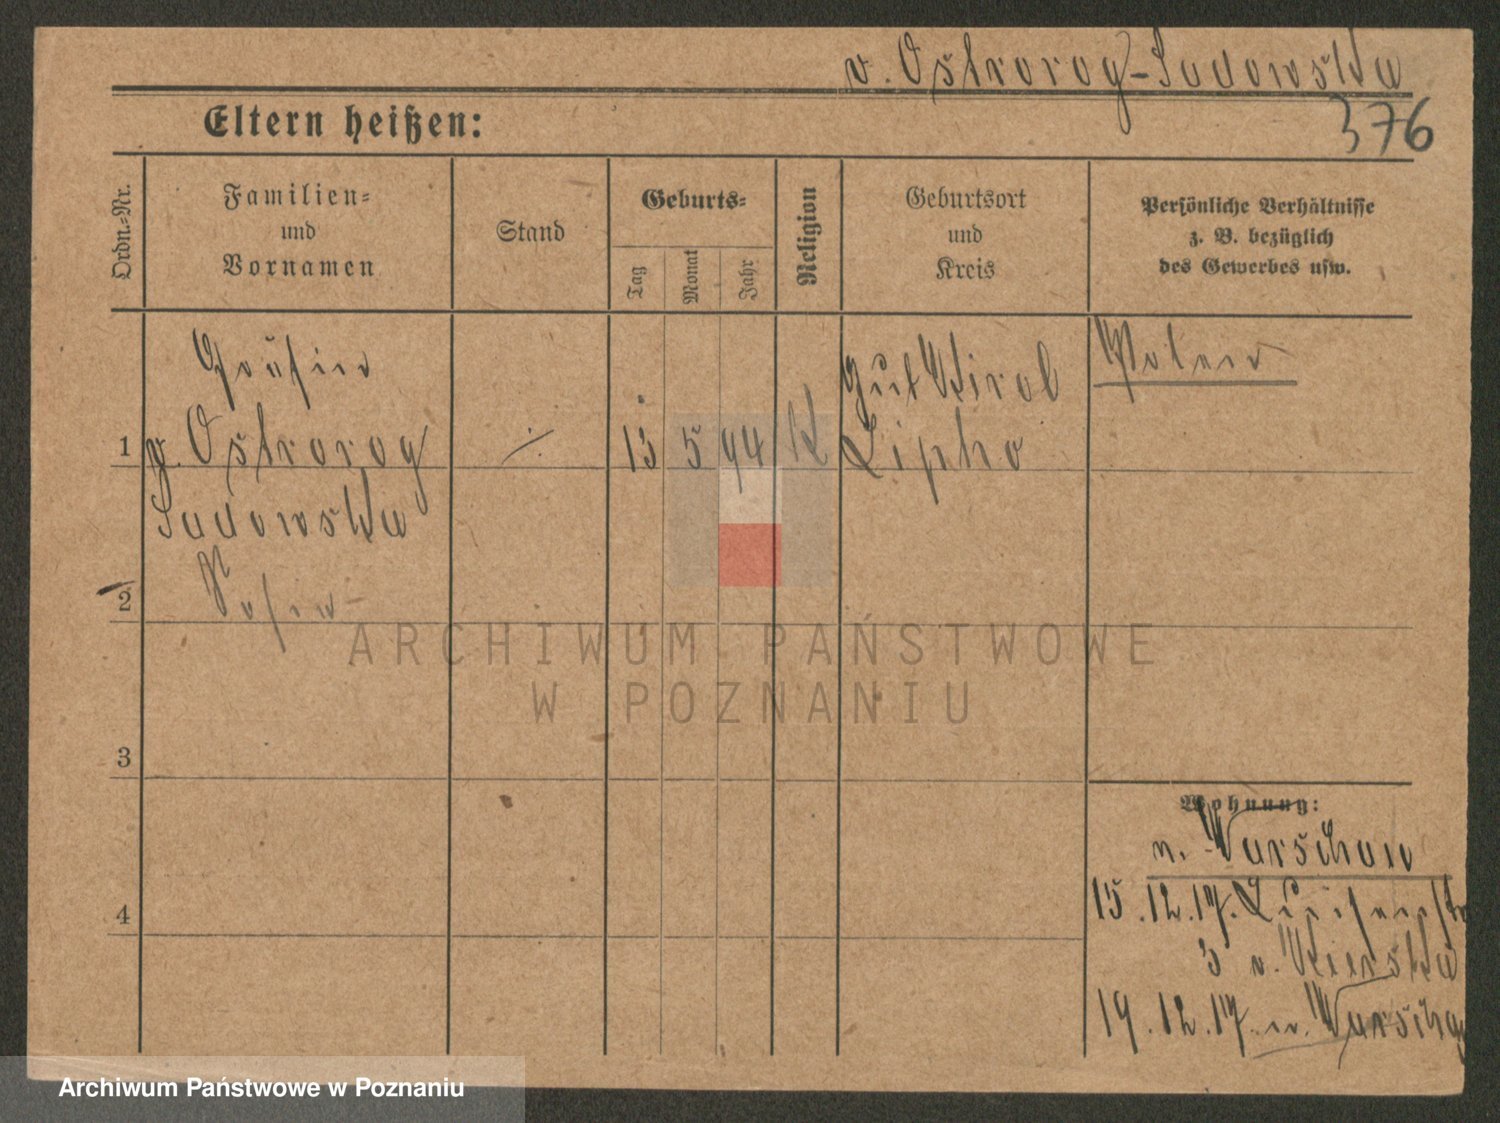 v. Ostrorog-Sadowska
376
Eltern heißen:
Ordn.-Nr.
Familien-
und
Vornamen
Stand
Geburts-
Tag
Monat
Jahr
Religion
Geburtsort
und
Kreis
Persönliche Verhältnisse
z. B. bezüglich
des Gewerbes usw.
Gräfin
1
v. Ostrorog
Sadowska
13 5 94 K
Gut
Lipko
Polen
2
3
4
Wohnung:
n. Warschau
15.12.17. Luisenstr
3 v.
19.12.17. n. Warschau
ARCHIWUM PAŃSTWOWE
W POZNANIU
Archiwum Państwowe w Poznaniu